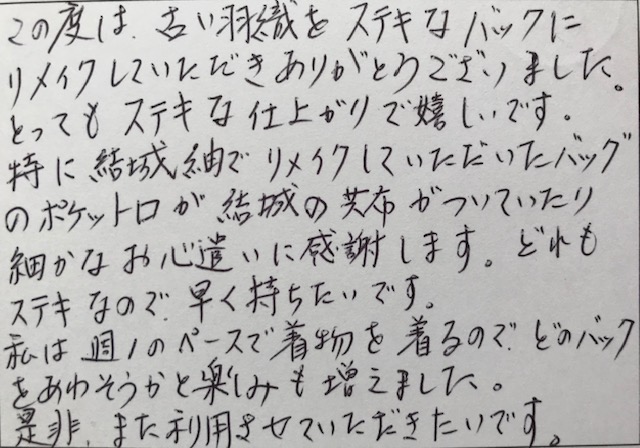 この度は、古い羽織をステキなバックに
リメイクしていただきありがとうございました。
とってもステキな仕上がりで嬉しいです。
特に結城紬でリメイクしていただいたバッグ
のポケット口が結城の共布がついていたり
細かなお心遣いに感謝します。どれも
ステキなので、早く持ちたいです。
私は週1のペースで着物を着るので、どのバック
をあわそうかと楽しみも増えました。
是非、また利用させていただきたいです。